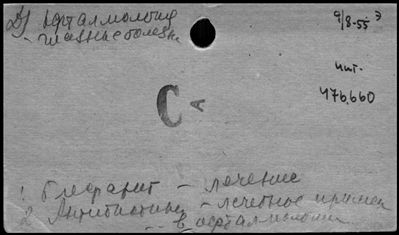 2) Офталмология
- глазные болезн.
9/8-55 э
чит.
476.660
С А
1. блефарит - лечение
2. Антибиотики - лечебное примен
- - в офталмологии